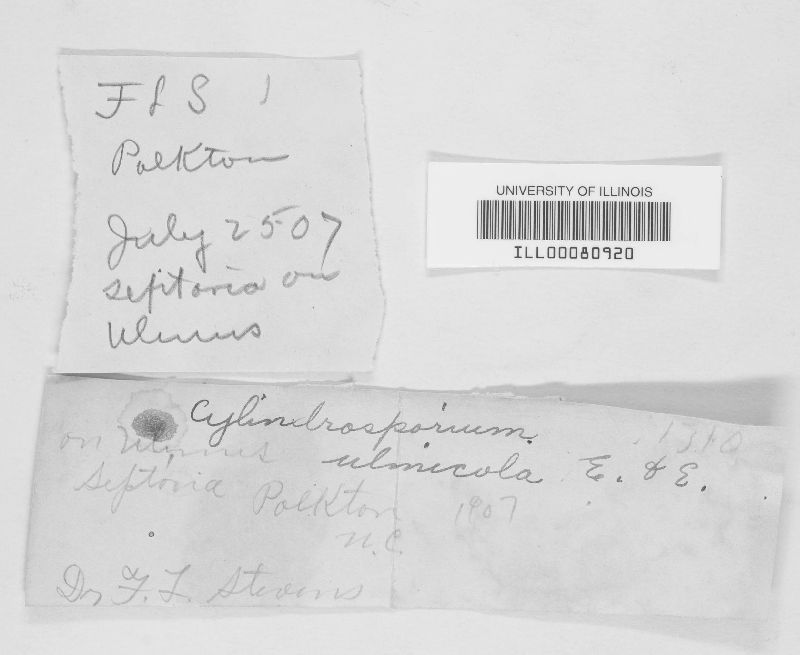 FLS 1
Polkton
July 25 07
septoria on
Ulmus
UNIVERSITY OF ILLINOIS
ILL00080920
Cylindrosporium
1310
on Ulmus
ulmicola E. & E.
Septoria Polkton 1907
N.C.
Dr F. L. Stevens